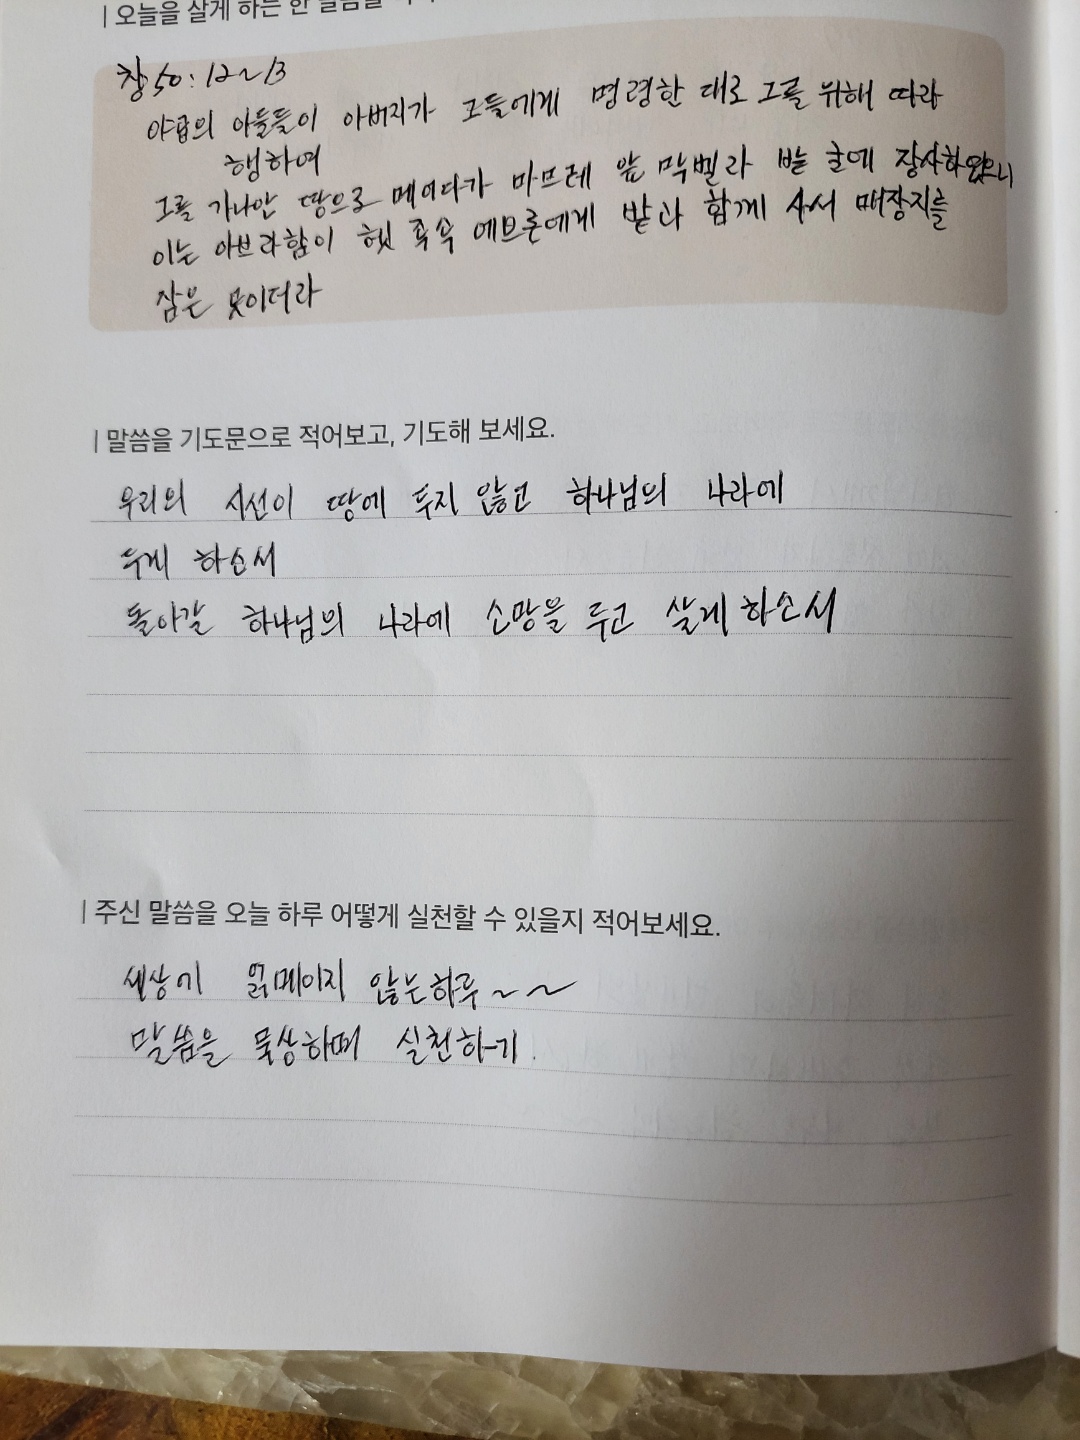 | 오늘을 살게 하는 한 말씀을
창 50 : 12~13
야곱의 아들들이 아버지가 그들에게 명령한 대로 그를 위해 따라
행하여
그를 가나안 땅으로 메이다가 마므레 앞 막벨라 밭 굴에 장사하였으니
이는 아브라함이 헷 족속 에브론에게 밭과 함께 사서 매장지를
삼은 곳이더라
| 말씀을 기도문으로 적어보고, 기도해 보세요.
우리의 시선이 땅에 두지 않고 하나님의 나라에
두게 하소서
돌아갈 하나님의 나라에 소망을 두고 살게 하소서
| 주신 말씀을 오늘 하루 어떻게 실천할 수 있을지 적어보세요.
세상에 얽메이지 않는하루~~
말씀을 묵상하며 실천하기.